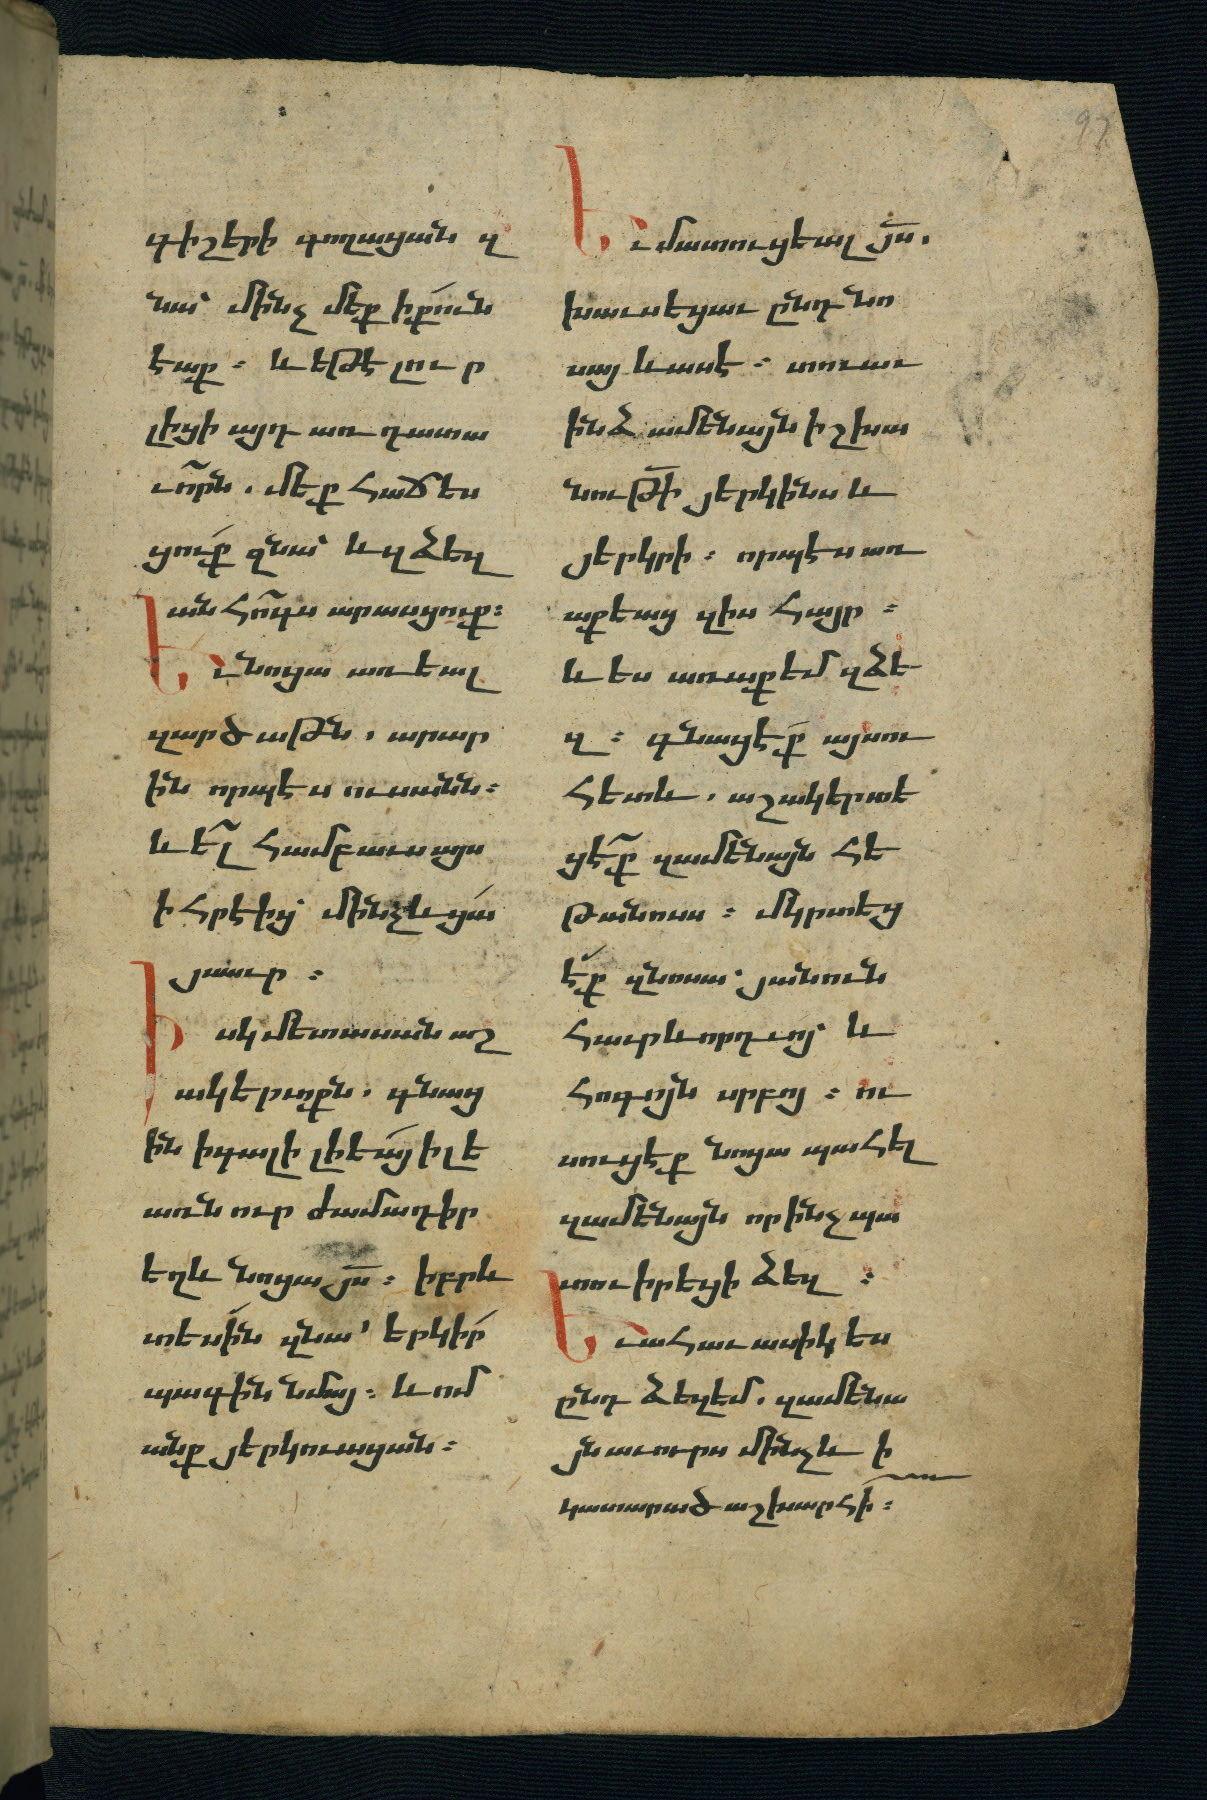 գիշերի գողացան զ
նա՝ մինչ մեք ի քուն
էաք ։ և եթէ լուր
լիցի այդ առ դատա
ւո̃րն . մեք հաճես
ցուք զնա՝ և զձեզ
անհո̃գս արասցուք։
Եւ նոցա առեալ
զարծաթն . արար
ին որպէս ուսանն։
և ե̃լ համբաւս այս
ի հրէից՝ մինչև ցա
յաւր ։
Իսկ մետասան աշ
ակերտքն . գնաց
ին ի գալիլիեայ ի լե
առն ուր ժամադիր
եղև նոցա յս̃ ։ իբրև
տեսին զնա՝ երկիր
պագին նմայ ։ և ոմ
անք յերկուացան ։
Եւ մատուցեալ յս̃ .
խաւսեցաւ ընդ նո
սայ և ասէ ։ տուաւ
ինձ ամենայն իշխա
նութի̃ յերկինս և
յերկրի ։ որպէս առ
աքեաց զիս հայր ։
և ես առաքեմ զձե
զ ։ գնացէք այսու
հետև . աշակերտե
ցէ̃ք զամենայն հե
թանոսս ։ մկրտեց
էք զնոսա՝ յանուն
հաւր և որդւոյ՝ և
հոգոյն սրբոյ ։ ու
սուցէք նոցա պահել
զամենայն որ ինչ պա
տուիրեցի ձեզ ։
Եւ ահաւասիկ ես
ընդ ձեզ եմ . զամենա
յն աւուրս մինչև ի
կատարած աշխարհի ։
97